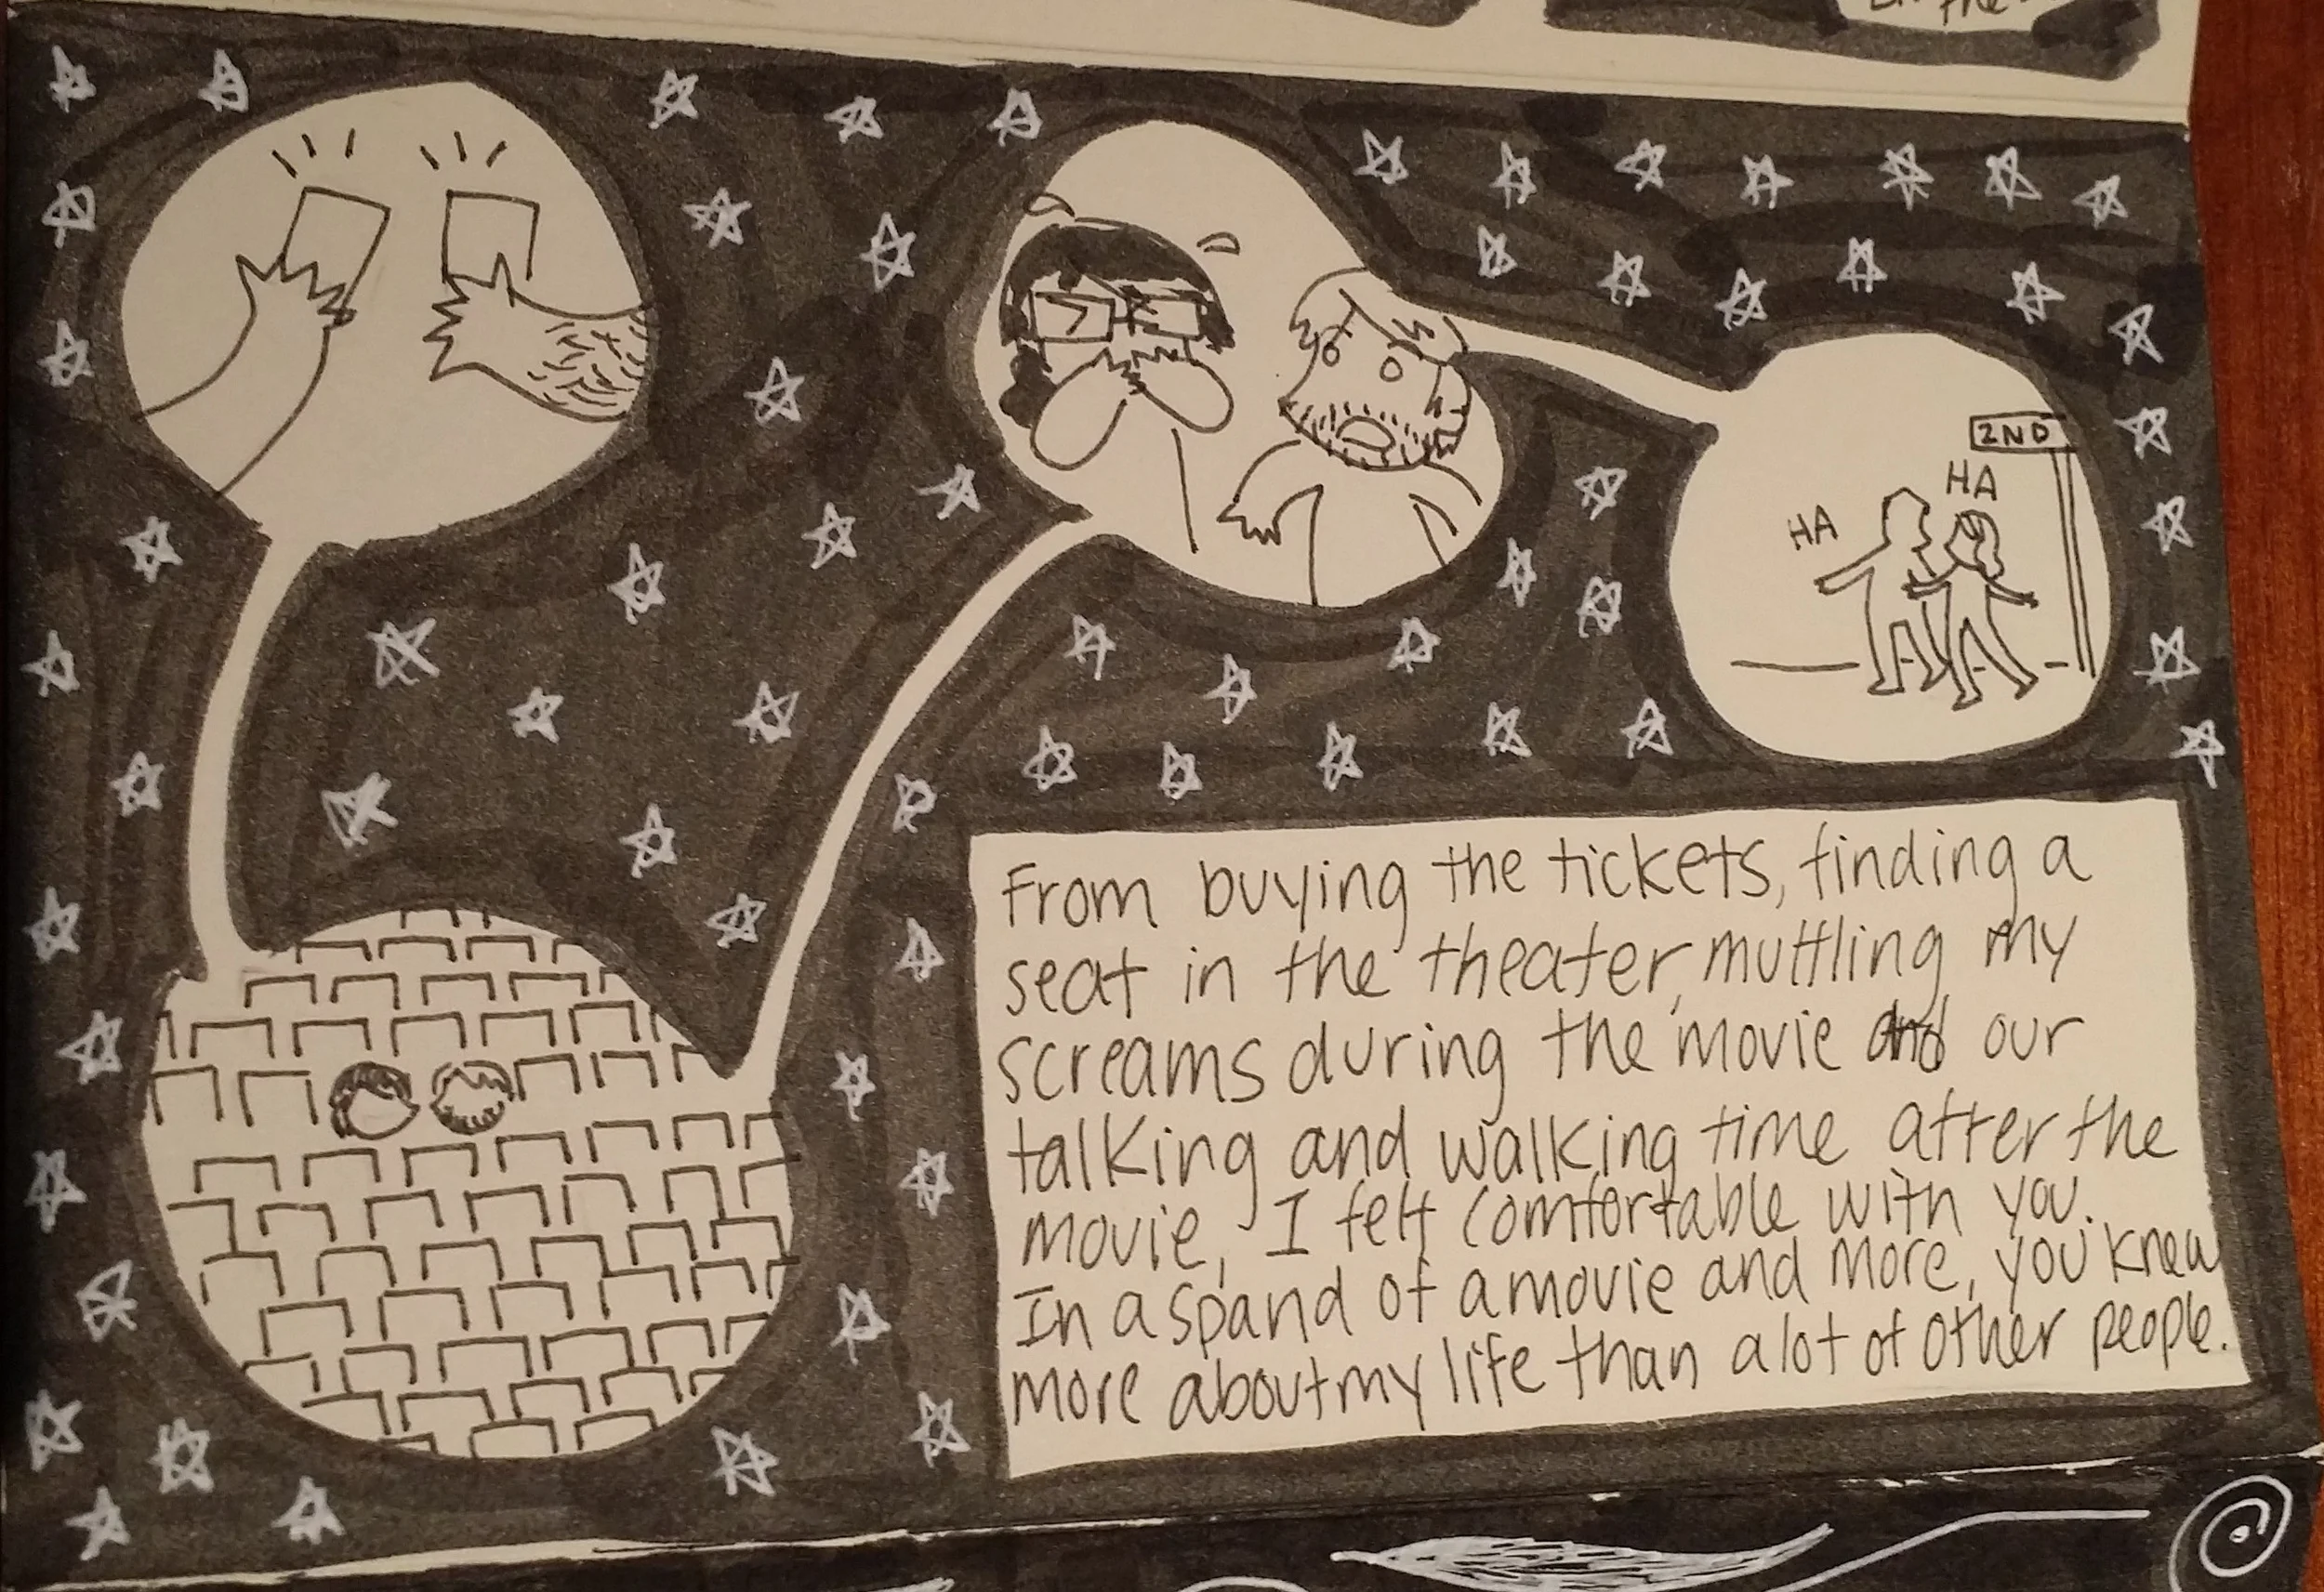 the
2ND
HA
HA
From buying the tickets, finding a
seat in the theater, muffling my
screams during the movie and our
talking and walking time after the
movie, I felt comfortable with you.
In a spand of a movie and more, you knew
more about my life than a lot of other people.